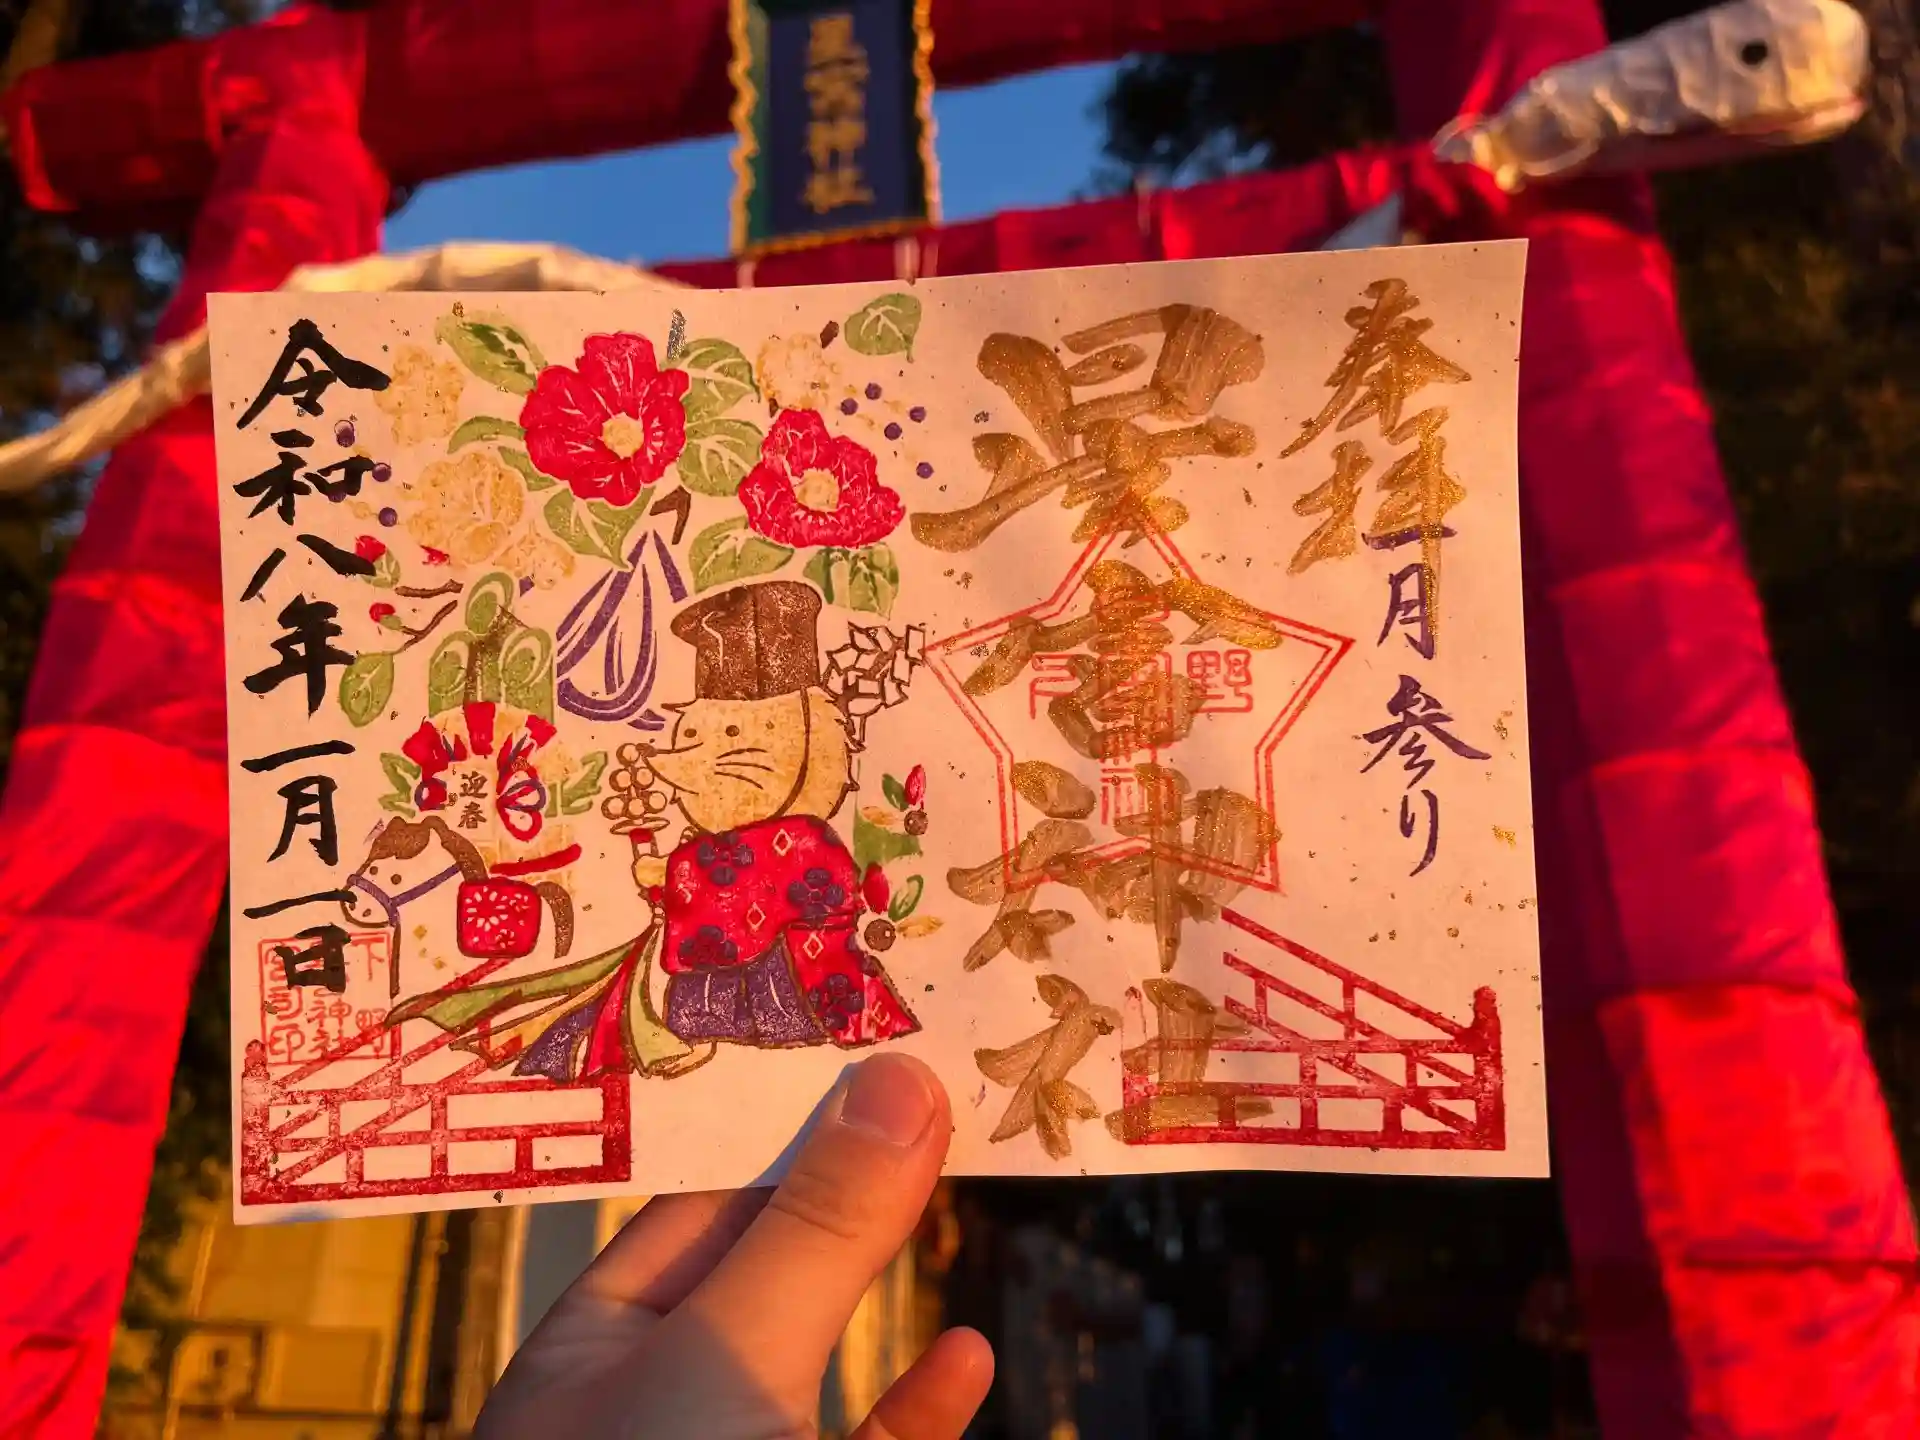 星宮神社
奉拝
一月参り
星宮神社
下野
星宮神社
迎春
令和八年一月一日
下野
神社
宮司印